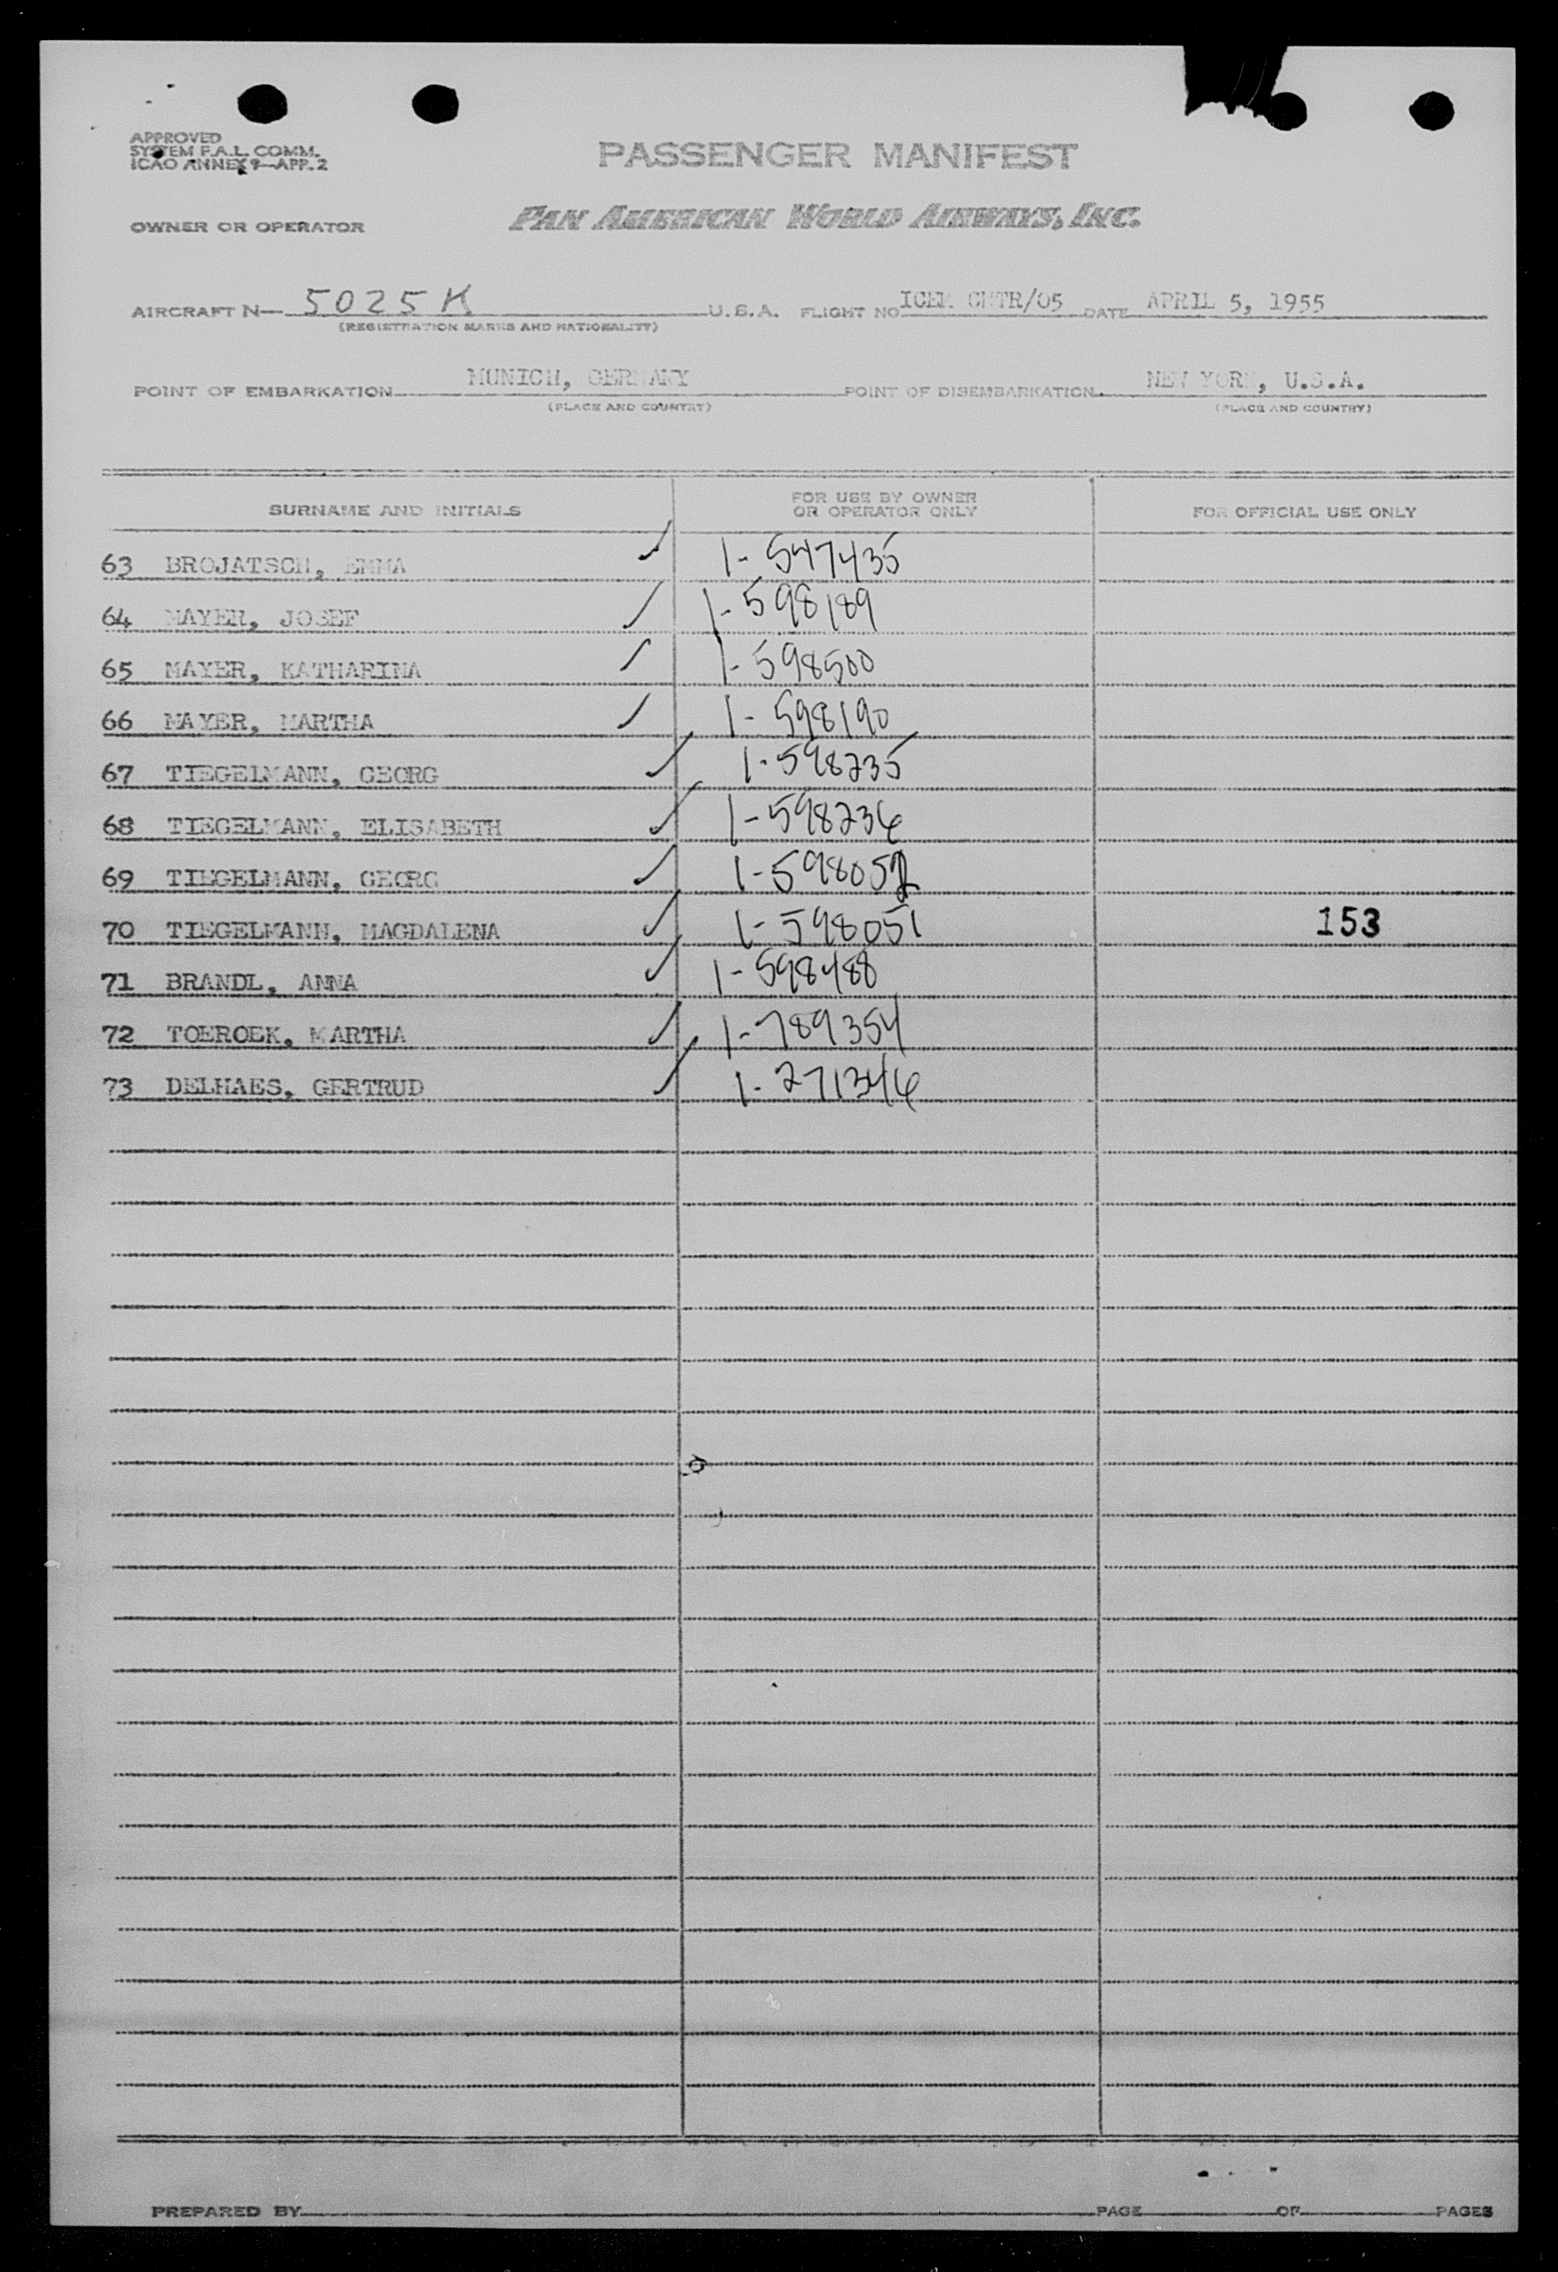 APPROVED
SYSTEM F.A.L. COMM.
ICAO ANNEX 9—APP. 2
PASSENGER MANIFEST
OWNER OR OPERATOR
PAN AMERICAN WORLD AIRWAYS, INC.
AIRCRAFT N— 5025K U.S.A. FLIGHT NO ICEM CHTR/05 DATE APRIL 5, 1955
(REGISTRATION MARKS AND NATIONALITY)
POINT OF EMBARKATION MUNICH, GERMANY POINT OF DISEMBARKATION NEW YORK, U.S.A.
(PLACE AND COUNTRY) (PLACE AND COUNTRY)
SURNAME AND INITIALS FOR USE BY OWNER OR OPERATOR ONLY FOR OFFICIAL USE ONLY
63 BROJATSCH, EMMA ✓ 1-547435
64 MAYER, JOSEF ✓ 1-598189
65 MAYER, KATHARINA ✓ 1-598500
66 MAYER, MARTHA ✓ 1-598190
67 TIEGELMANN, GEORG ✓ 1-598235
68 TIEGELMANN, ELISABETH ✓ 1-598236
69 TIEGELMANN, GEORG ✓ 1-598052
70 TIEGELMANN, MAGDALENA ✓ 1-598051 153
71 BRANDL, ANNA ✓ 1-598488
72 TOEROEK, MARTHA ✓ 1-789354
73 DELHAES, GERTRUD ✓ 1-271346
PREPARED BY PAGE OF PAGES